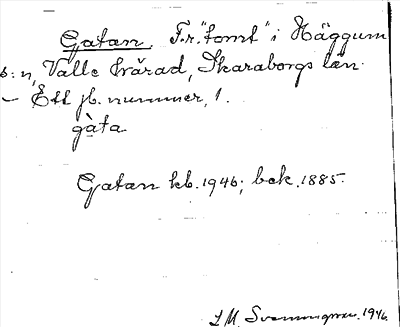 Gatan. Fr. "tomt" i Häggum
s:n, Valle härad, Skaraborgs län.
- Ett jb. nummer, 1.
gàta
Gatan kb. 1946; bek. 1885.
I.M. Svenningsson. 1946.